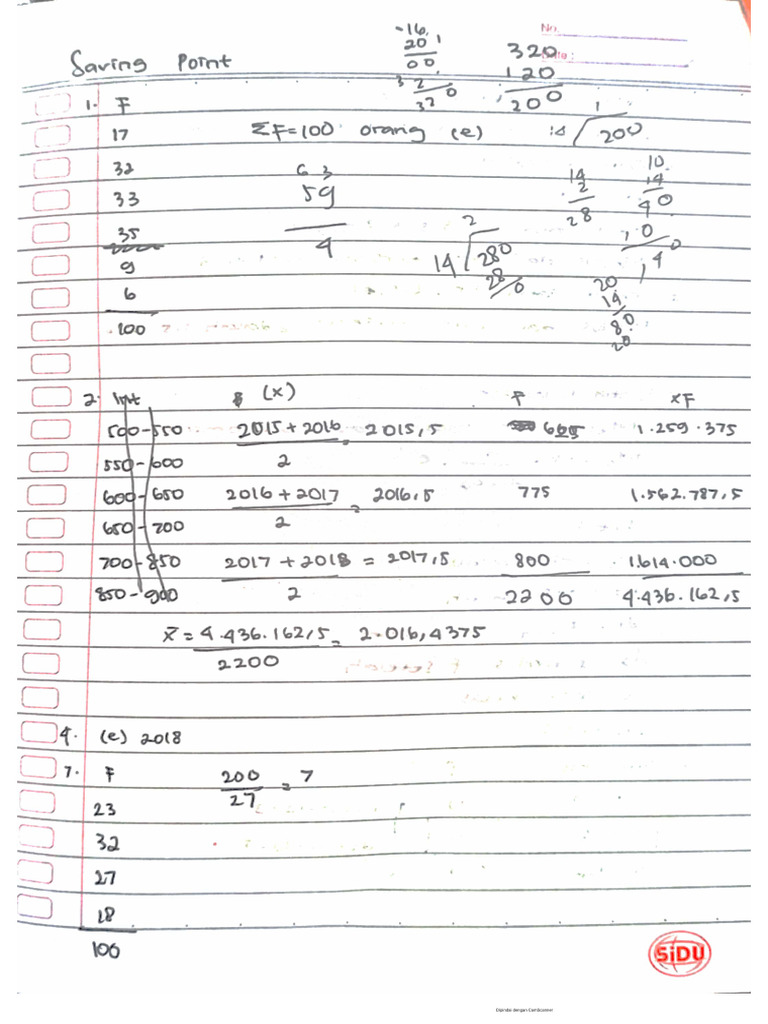 No.
-16,
20 1
00
320
120
200
Saving Point
3 2
32 0
1. F
17
ΣF=100 orang (e)
14 / 200
1
32
63
33
59
35
4
9
6
100
14
2
28
10
14
40
2
14 / 280
28
0
20
14
80
20
2. Int (x) F xF
500-550 2015 + 2016 = 2015,5 625 1.259.375
550-600 2
600-650 2016 + 2017 = 2016,5 775 1.562.787,5
650-700 2
700-850 2017 + 2018 = 2017,5 800 1.614.000
850-900 2 2200 4.436.162,5
x̄ = 4.436.162,5 = 2.016,4375
2200
4. (e) 2018
7. F 200 = 7
27
23
32
27
18
100
SiDU
Dipindai dengan CamScanner